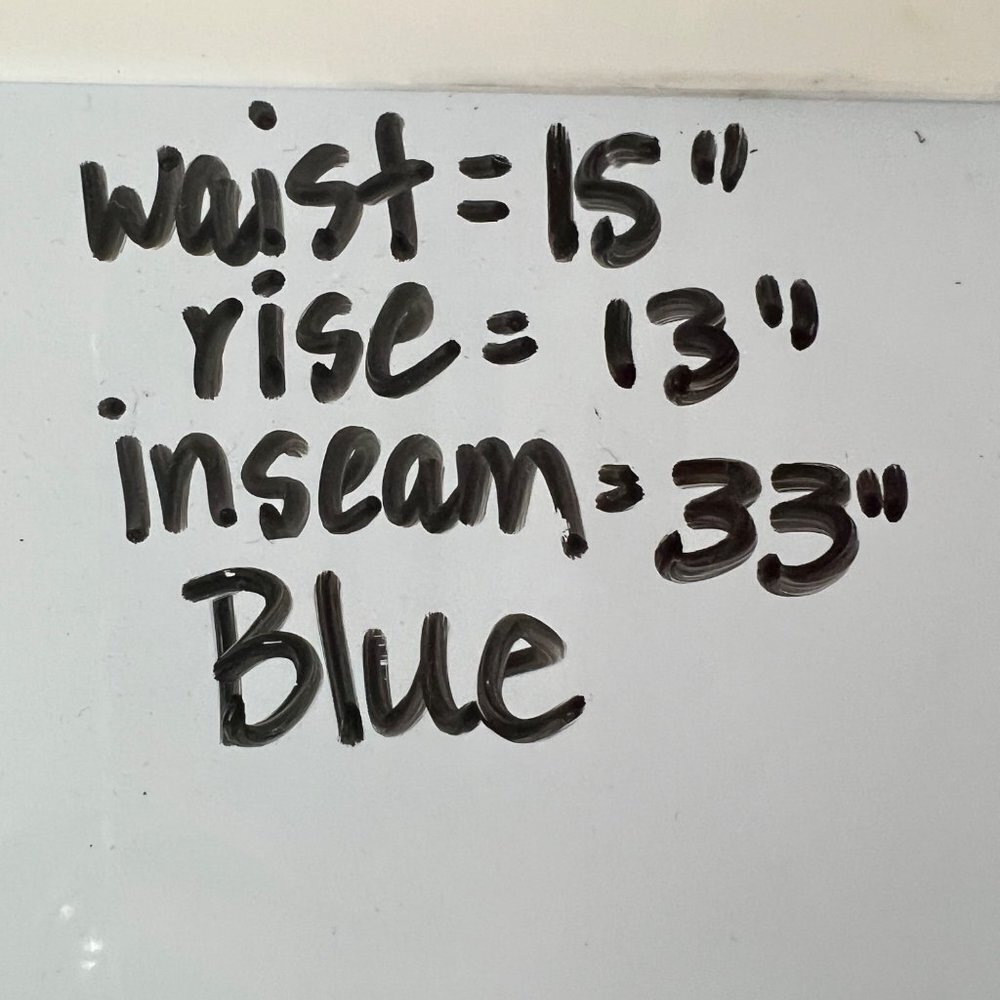 waist = 15"
rise = 13"
inseam = 33"
Blue